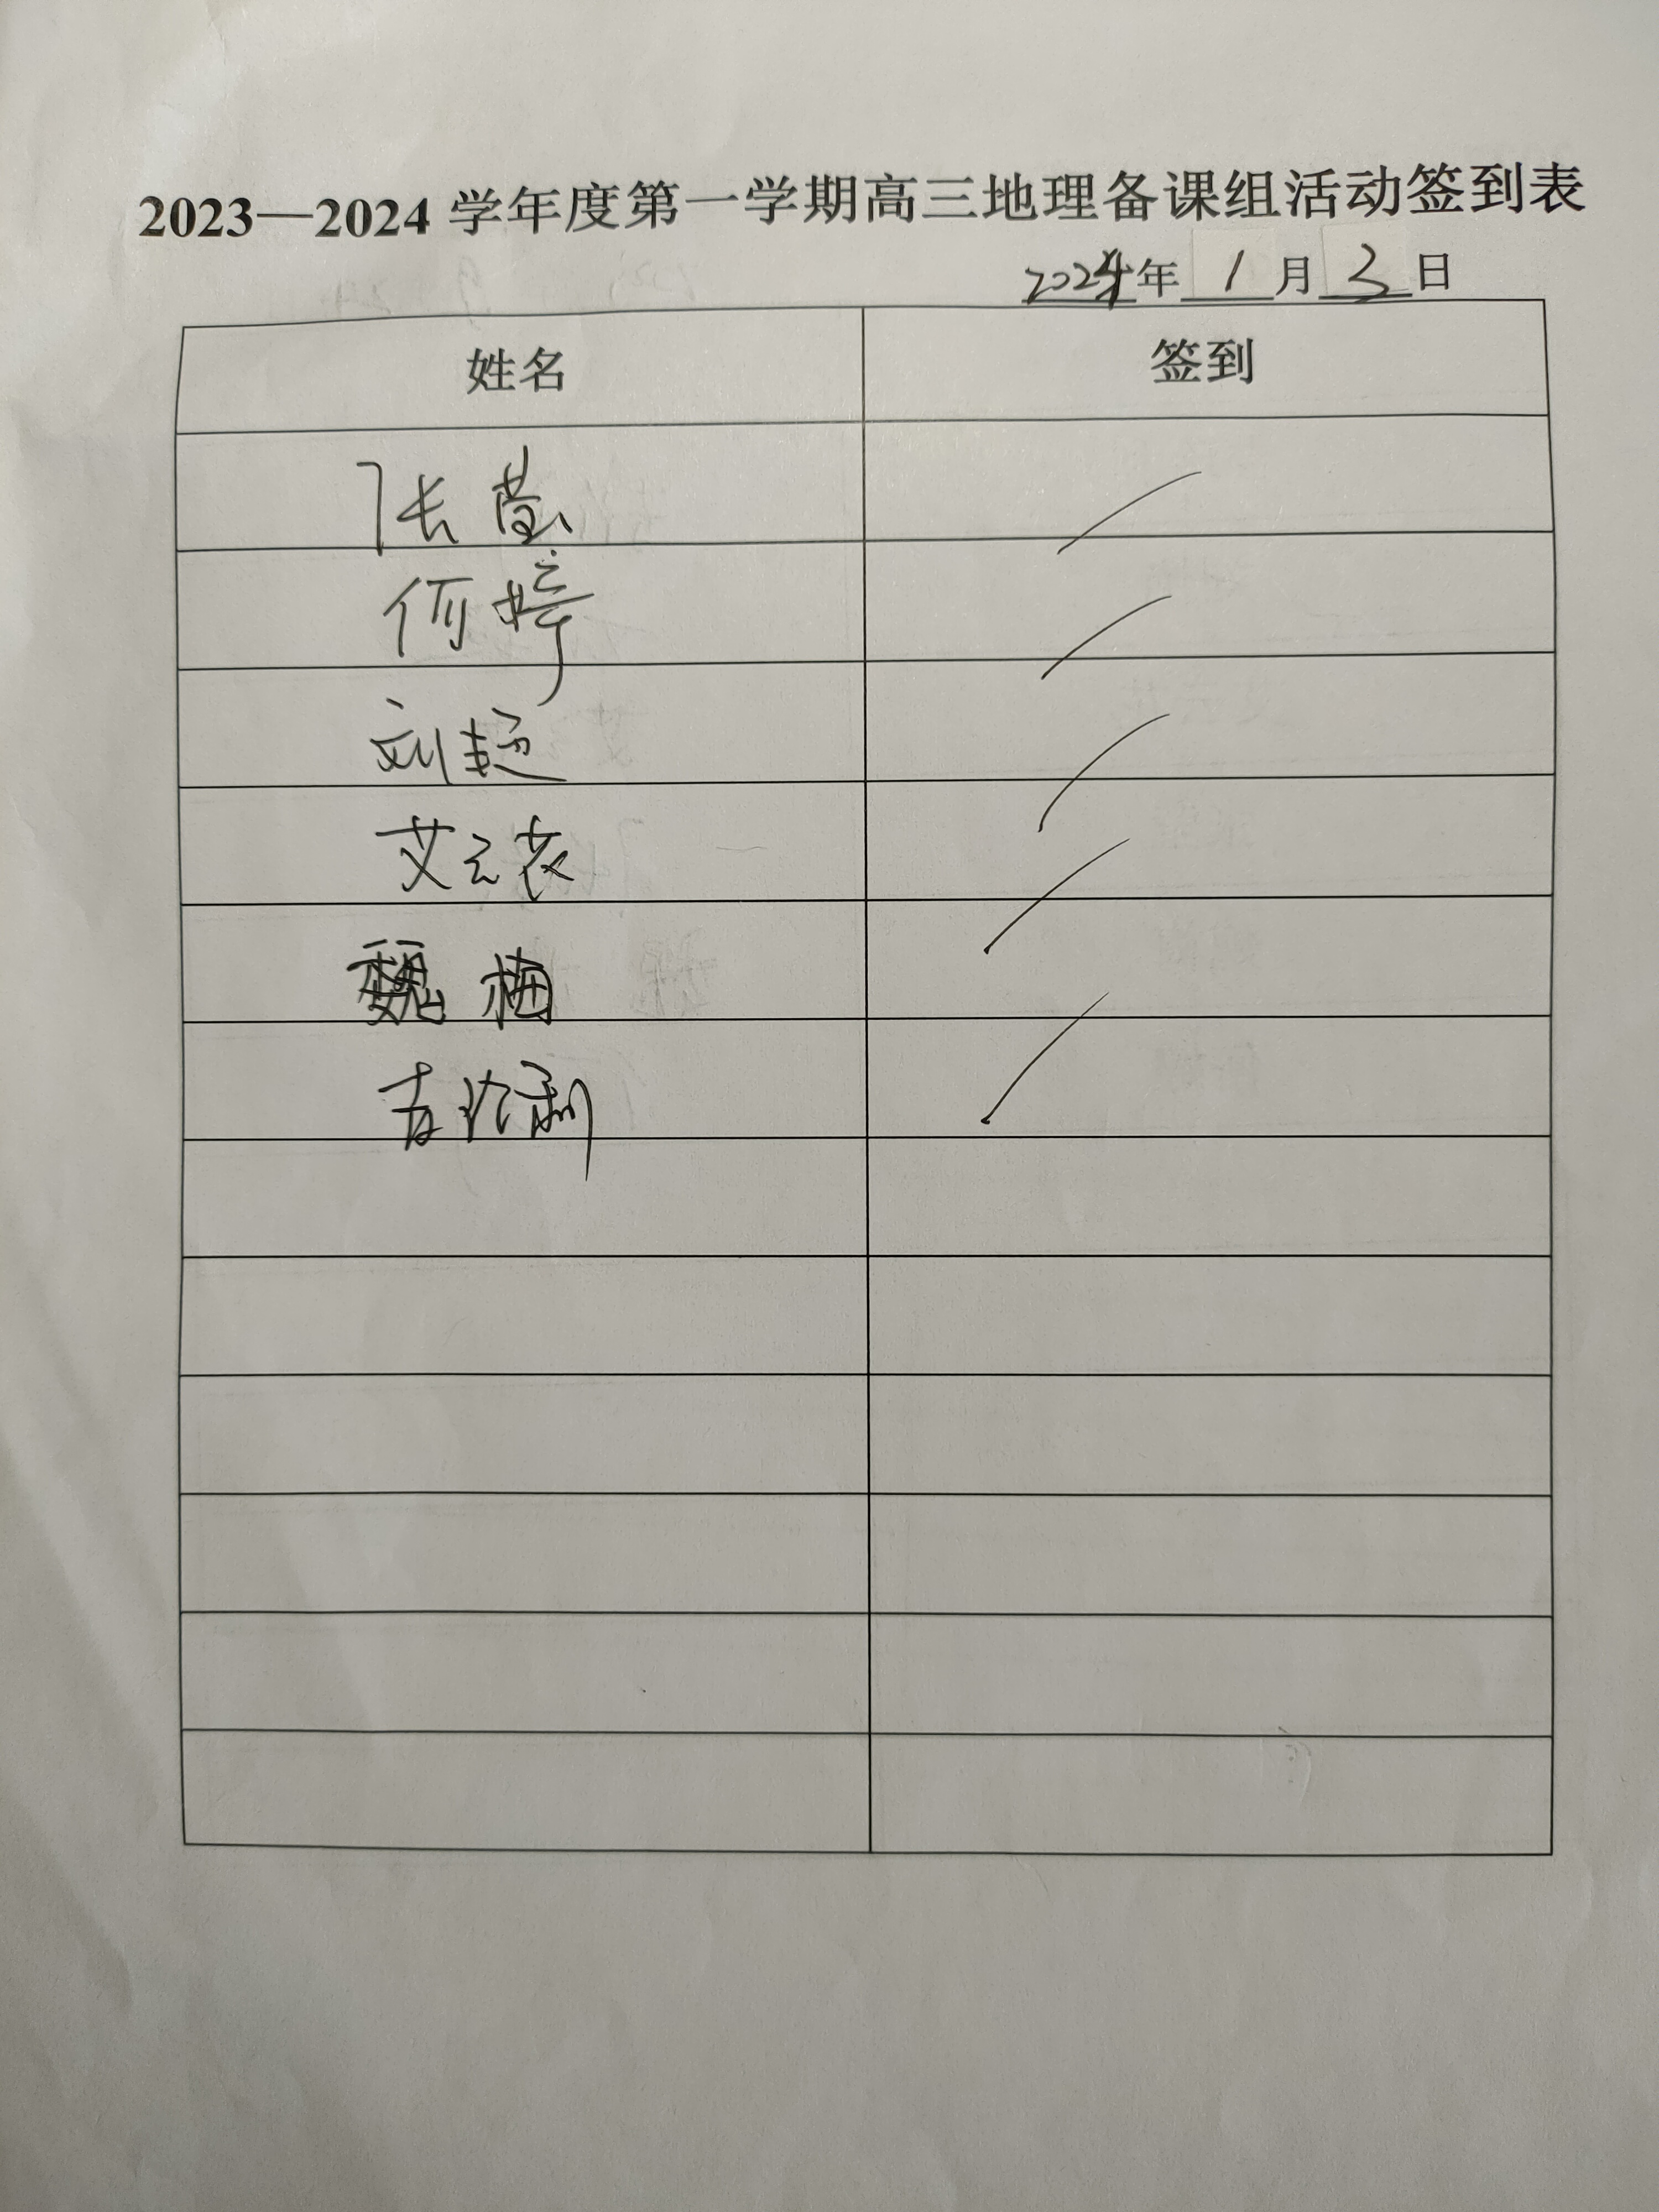 2023—2024 学年度第一学期高三地理备课组活动签到表
2024年 1 月 3 日
姓名 签到
张莹
何婷
刘超
艾云农
魏梅